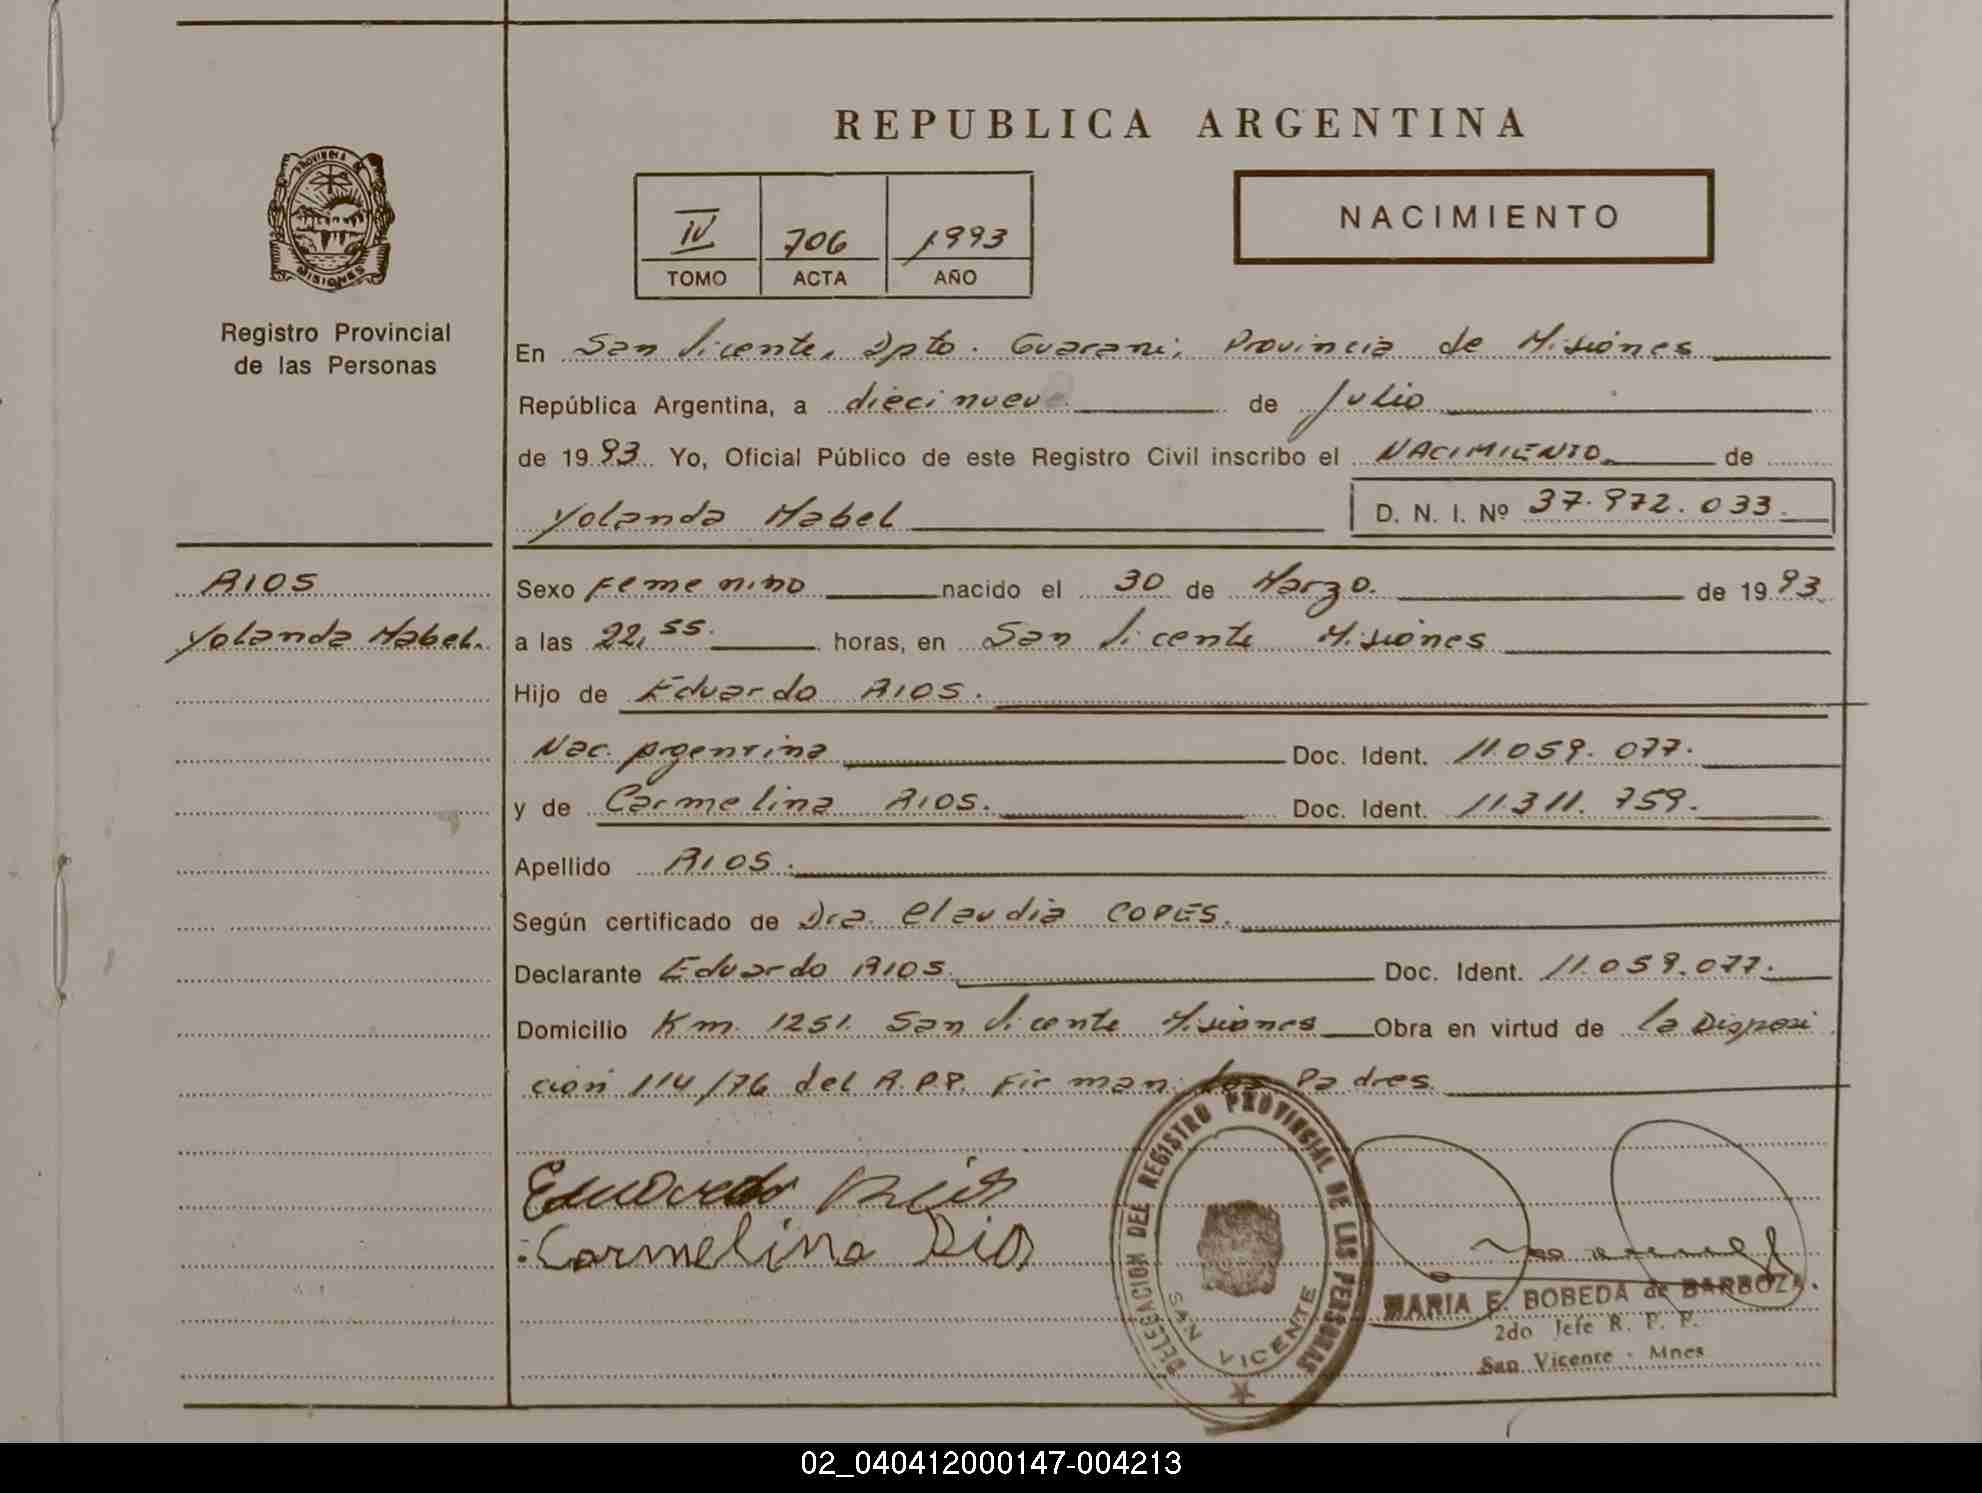 REPUBLICA ARGENTINA
PROVINCIA DE
MISIONES
Registro Provincial
de las Personas
IV 706 1993
TOMO ACTA AÑO
NACIMIENTO
En San Vicente, Dpto. Guarani, Provincia de Misiones
República Argentina, a diecinueve de Julio
de 1993 Yo, Oficial Público de este Registro Civil inscribo el NACIMIENTO de
Yolanda Mabel D. N. I. Nº 37.972.033
RIOS
Yolanda Mabel.
Sexo Femenino nacido el 30 de Marzo. de 1993
a las 22,55. horas, en San Vicente Misiones
Hijo de Eduardo RIOS.
Nac. Argentina Doc. Ident. 11.059.077.
y de Carmelina RIOS. Doc. Ident. 11.311.759.
Apellido RIOS.
Según certificado de Dra. Claudia COPES.
Declarante Eduardo RIOS. Doc. Ident. 11.059.077.
Domicilio Km. 1251. San Vicente Misiones Obra en virtud de la Disposi
ción 114/76 del R.P.P. Firman los Padres.
Eduardo Rios
Carmelina Rios
DELEGACION DEL REGISTRO PROVINCIAL DE LAS PERSONAS
SAN VICENTE
MARIA E. BOBEDA de BARBOZA.
2do Jefe R. P. P.
San Vicente - Mnes
02_040412000147-004213